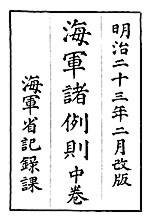 明治二十三年二月改版
海軍諸例則中巻
海軍省記録課